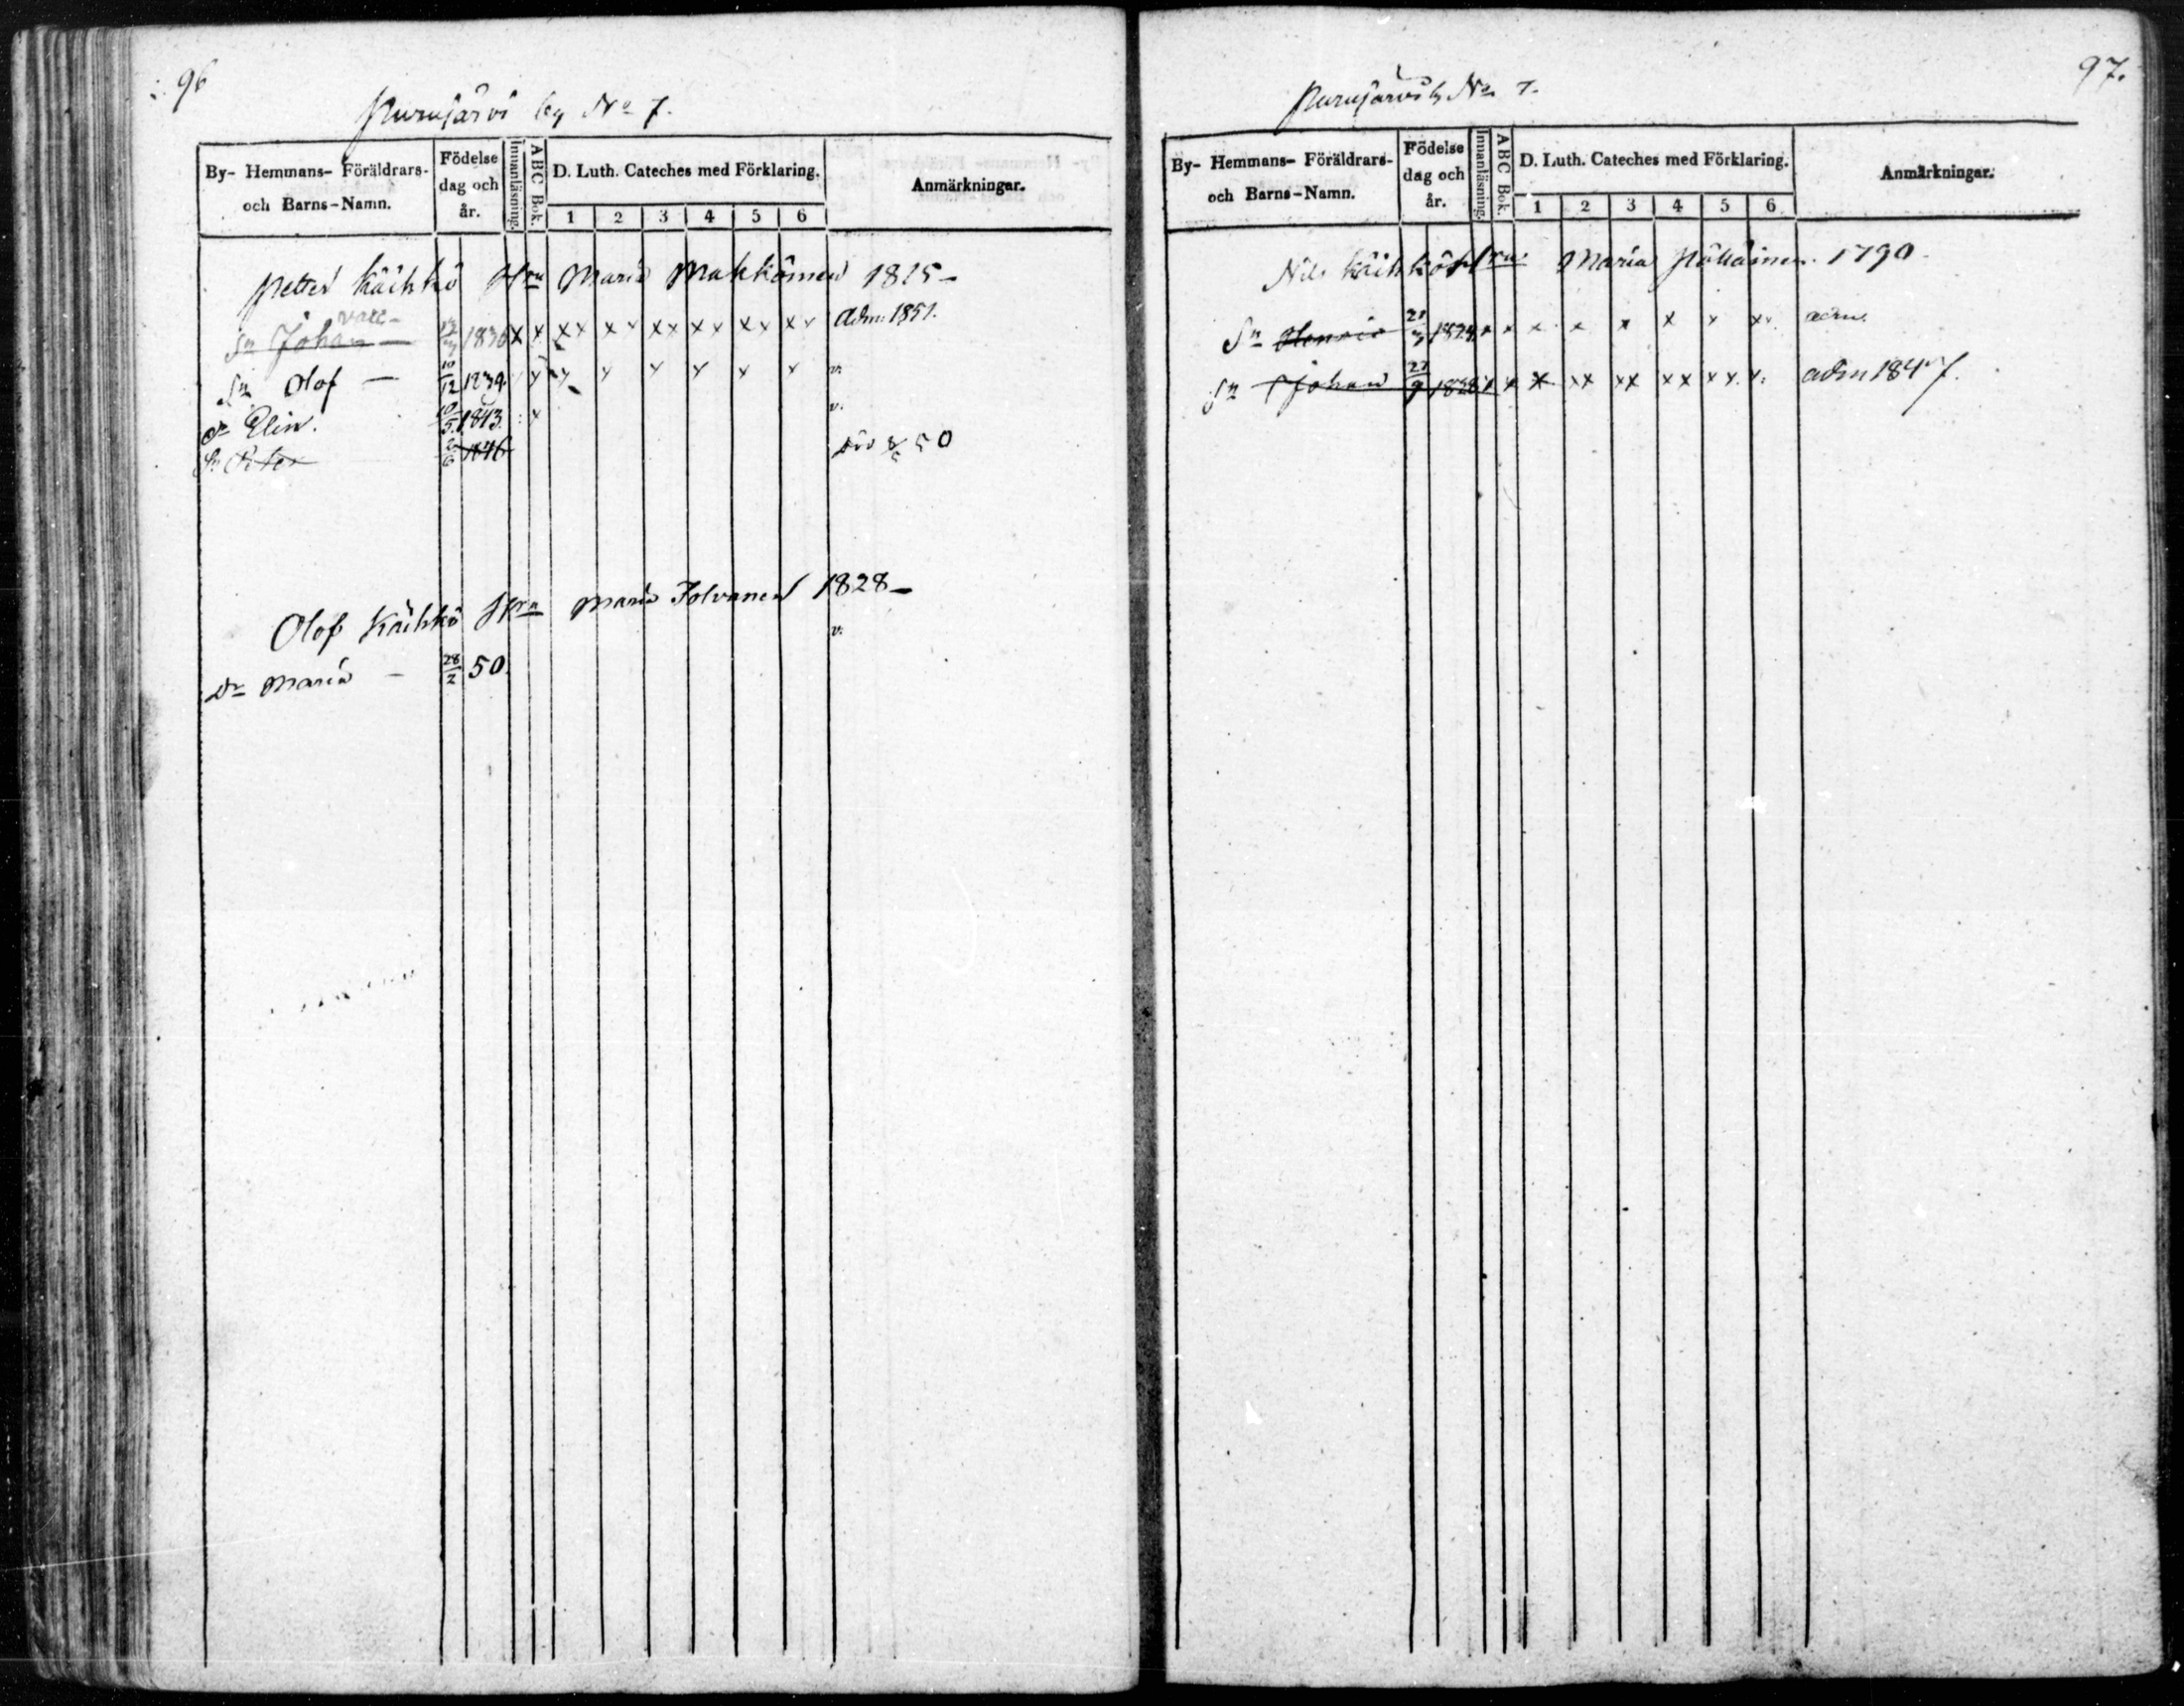 96
Purujärvi by No 7.
By- Hemmans- Föräldrars- och Barns-Namn.
Födelse dag och år.
Innanläsning.
ABC Bok.
D. Luth. Cateches med Förklaring.
1 2 3 4 5 6
Anmärkningar.
Petter Käihkö Hru Maria Makkonen 1815-
vacc-
Sn Johan - 1836 x x xx xx xx xx xx xx Adm: 1851.
Sn Olof - 10/12 1839 x x x x x x v.
Dr Elin. 10/5 1843. x v.
Sn Peter 2/6 1846 död 50
Olof Käihkö Hru Maria Tolvanen 1828-
v.
Dr Maria - 28/2 50.
97.
Purujärvi by No 7.
By- Hemmans- Föräldrars- och Barns-Namn.
Födelse dag och år.
Innanläsning.
ABC Bok.
D. Luth. Cateches med Förklaring.
1 2 3 4 5 6
Anmärkningar.
Nils Käihkö Hru Maria 1790
Sn Henric 1824 x x x x x x x x adm.
Sn Johan 27/9 1828 x x x xx xx xx xx x. adm 1847.